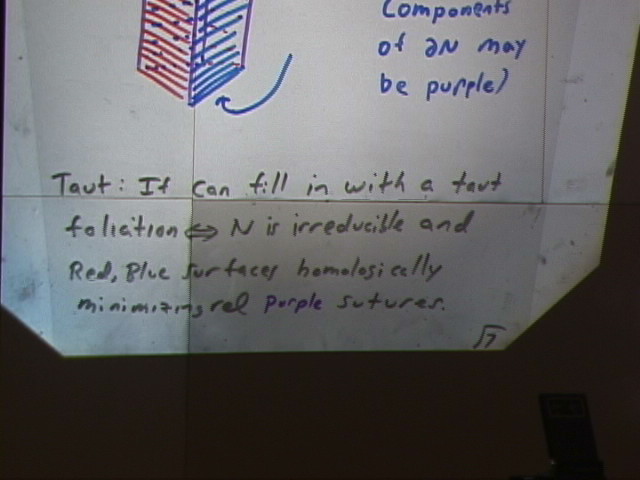 Components
of ∂N may
be purple)
Taut: If can fill in with a taut
foliation ⇔ N is irreducible and
Red, Blue surfaces homologically
minimizing rel purple sutures.
√7